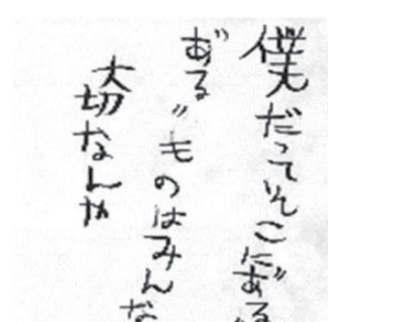 僕だってそこに〝ある
〝ある〟ものはみんな
大切なん